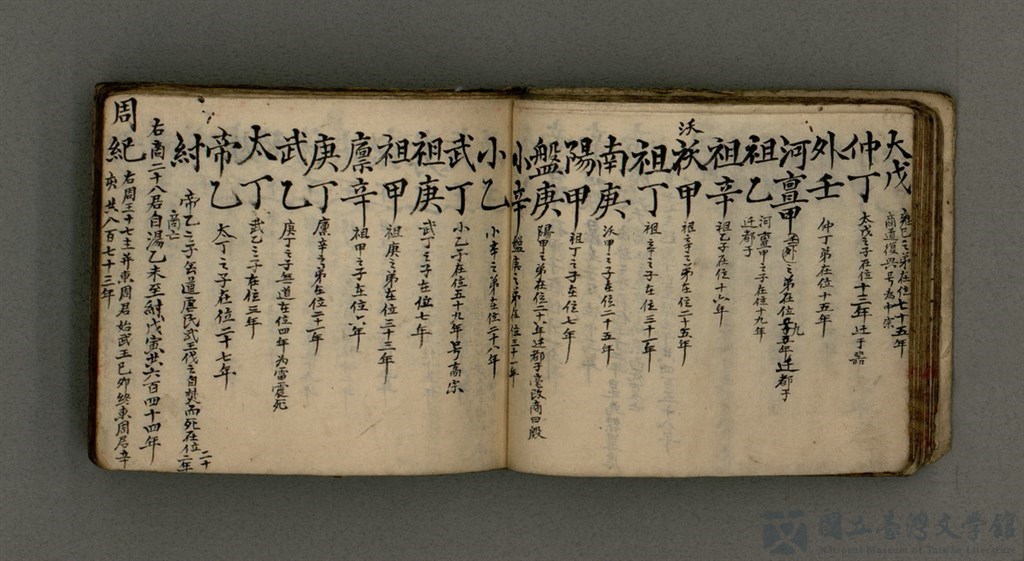 大戊 雍己之弟在位七十五年
商道復興号為中宗
仲丁 太戊之子在位十三年迁于嚣
外壬 仲丁弟在位十五年
河亶甲 外壬之弟在位九年迁都于
祖乙 河亶甲之子在位十九年
迁都于
祖辛 祖乙子在位十六年
沃
祆甲 祖辛之弟在位二十五年
祖丁 祖辛之子在位三十二年
南庚 沃甲之子在位二十五年
陽甲 祖丁之子在位七年
盤庚 陽甲之弟在位二十八年迁都于亳改商曰殷
小辛 盤庚之弟在位二十一年
小乙 小辛之弟在位二十八年
武丁 小乙子在位五十九年号高宗
祖庚 武丁之子在位七年
祖甲 祖庚之子在位三十三年
廪辛 祖甲之子在位六年
庚丁 廪辛之弟在位二十一年
武乙 庚丁之子無道在位四年为雷震死
太丁 武乙之子在位三年
帝乙 太丁之子在位二十七年
紂 帝乙之子為道虐民武王伐之自焚而死在位二十二年
商亡
右商二十八君自湯乙未至紂戊寅共六百四十四年
周紀 右周三十七主并東周君始武王己卯終東周君辛
亥 共八百七十三年
國立臺灣文學館
National Museum of Taiwan Literature